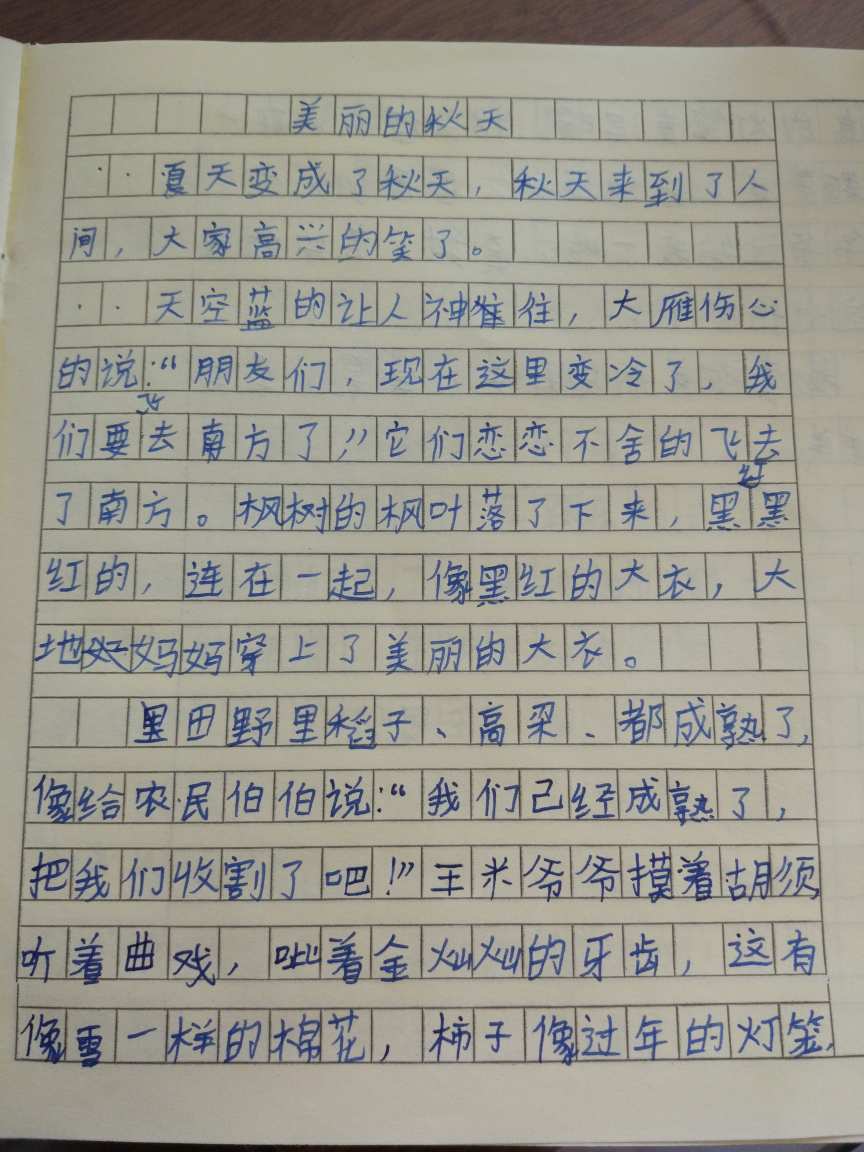 美丽的秋天
夏天变成了秋天，秋天来到了人
间，大家高兴的笑了。
天空蓝的让人神往，大雁伤心
的说：“朋友们，现在这里变冷了，我
们要飞去南方了！”它们恋恋不舍的飞去
了南方。枫树的枫叶落了下来，黑红黑
红的，连在一起，像黑红的大衣，大
地妈妈穿上了美丽的大衣。
田野里稻子、高梁、都成熟了，
像给农民伯伯说：“我们已经成熟了，
把我们收割了吧！”王米爷爷摸着胡须
听着曲戏，呲着金灿灿的牙齿，这有
像雪一样的棉花，柿子像过年的灯笼，